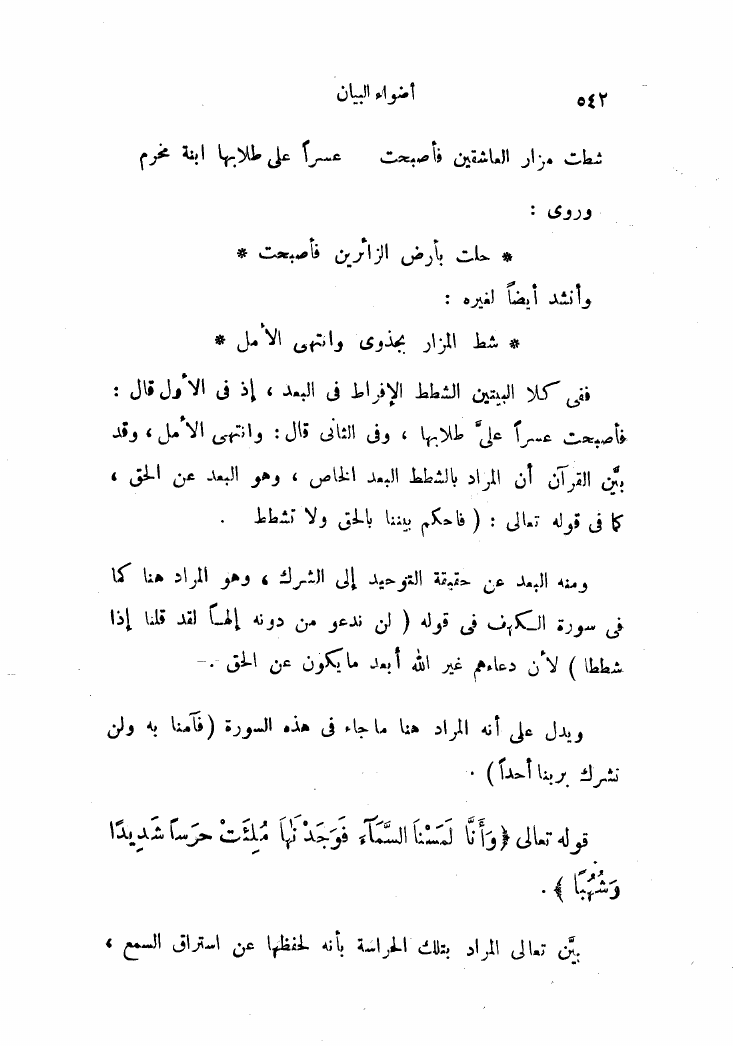 ٥٤٢ أضواء البيان
شطت مزار العاشقين فأصبحت عسراً على طلابها ابنة مخرم
وروى :
* حلت بأرض الزائرين فأصبحت *
وأنشد أيضاً لغيره :
* شط المزار بجذوى وانتهى الأمل *
ففى كلا البيتين الشطط الإفراط فى البعد ، إذ فى الأول قال :
فأصبحت عسراً علىَّ طلابها ، وفى الثانى قال : وانتهى الأمل ، وقد
بيَّن القرآن أن المراد بالشطط البعد الخاص ، وهو البعد عن الحق ،
كما فى قوله تعالى : ( فاحكم بيننا بالحق ولا تشطط .
ومنه البعد عن حقيقة التوحيد إلى الشرك ، وهو المراد هنا كما
فى سورة الكهف فى قوله ( لن ندعو من دونه إلهاً لقد قلنا إذا
شططا ) لأن دعاءهم غير الله أبعد ما يكون عن الحق .
ويدل على أنه المراد هنا ما جاء فى هذه السورة ( فآمنا به ولن
نشرك بربنا أحداً ) .
قوله تعالى ﴿ وَأَنَّا لَمَسْنَا السَّمَآءَ فَوَجَدْنَٰهَا مُلِئَتْ حَرَساً شَدِيدًا
وَشُهُبًا ﴾ .
بيَّن تعالى المراد بتلك الحراسة بأنه لحفظها عن استراق السمع ،